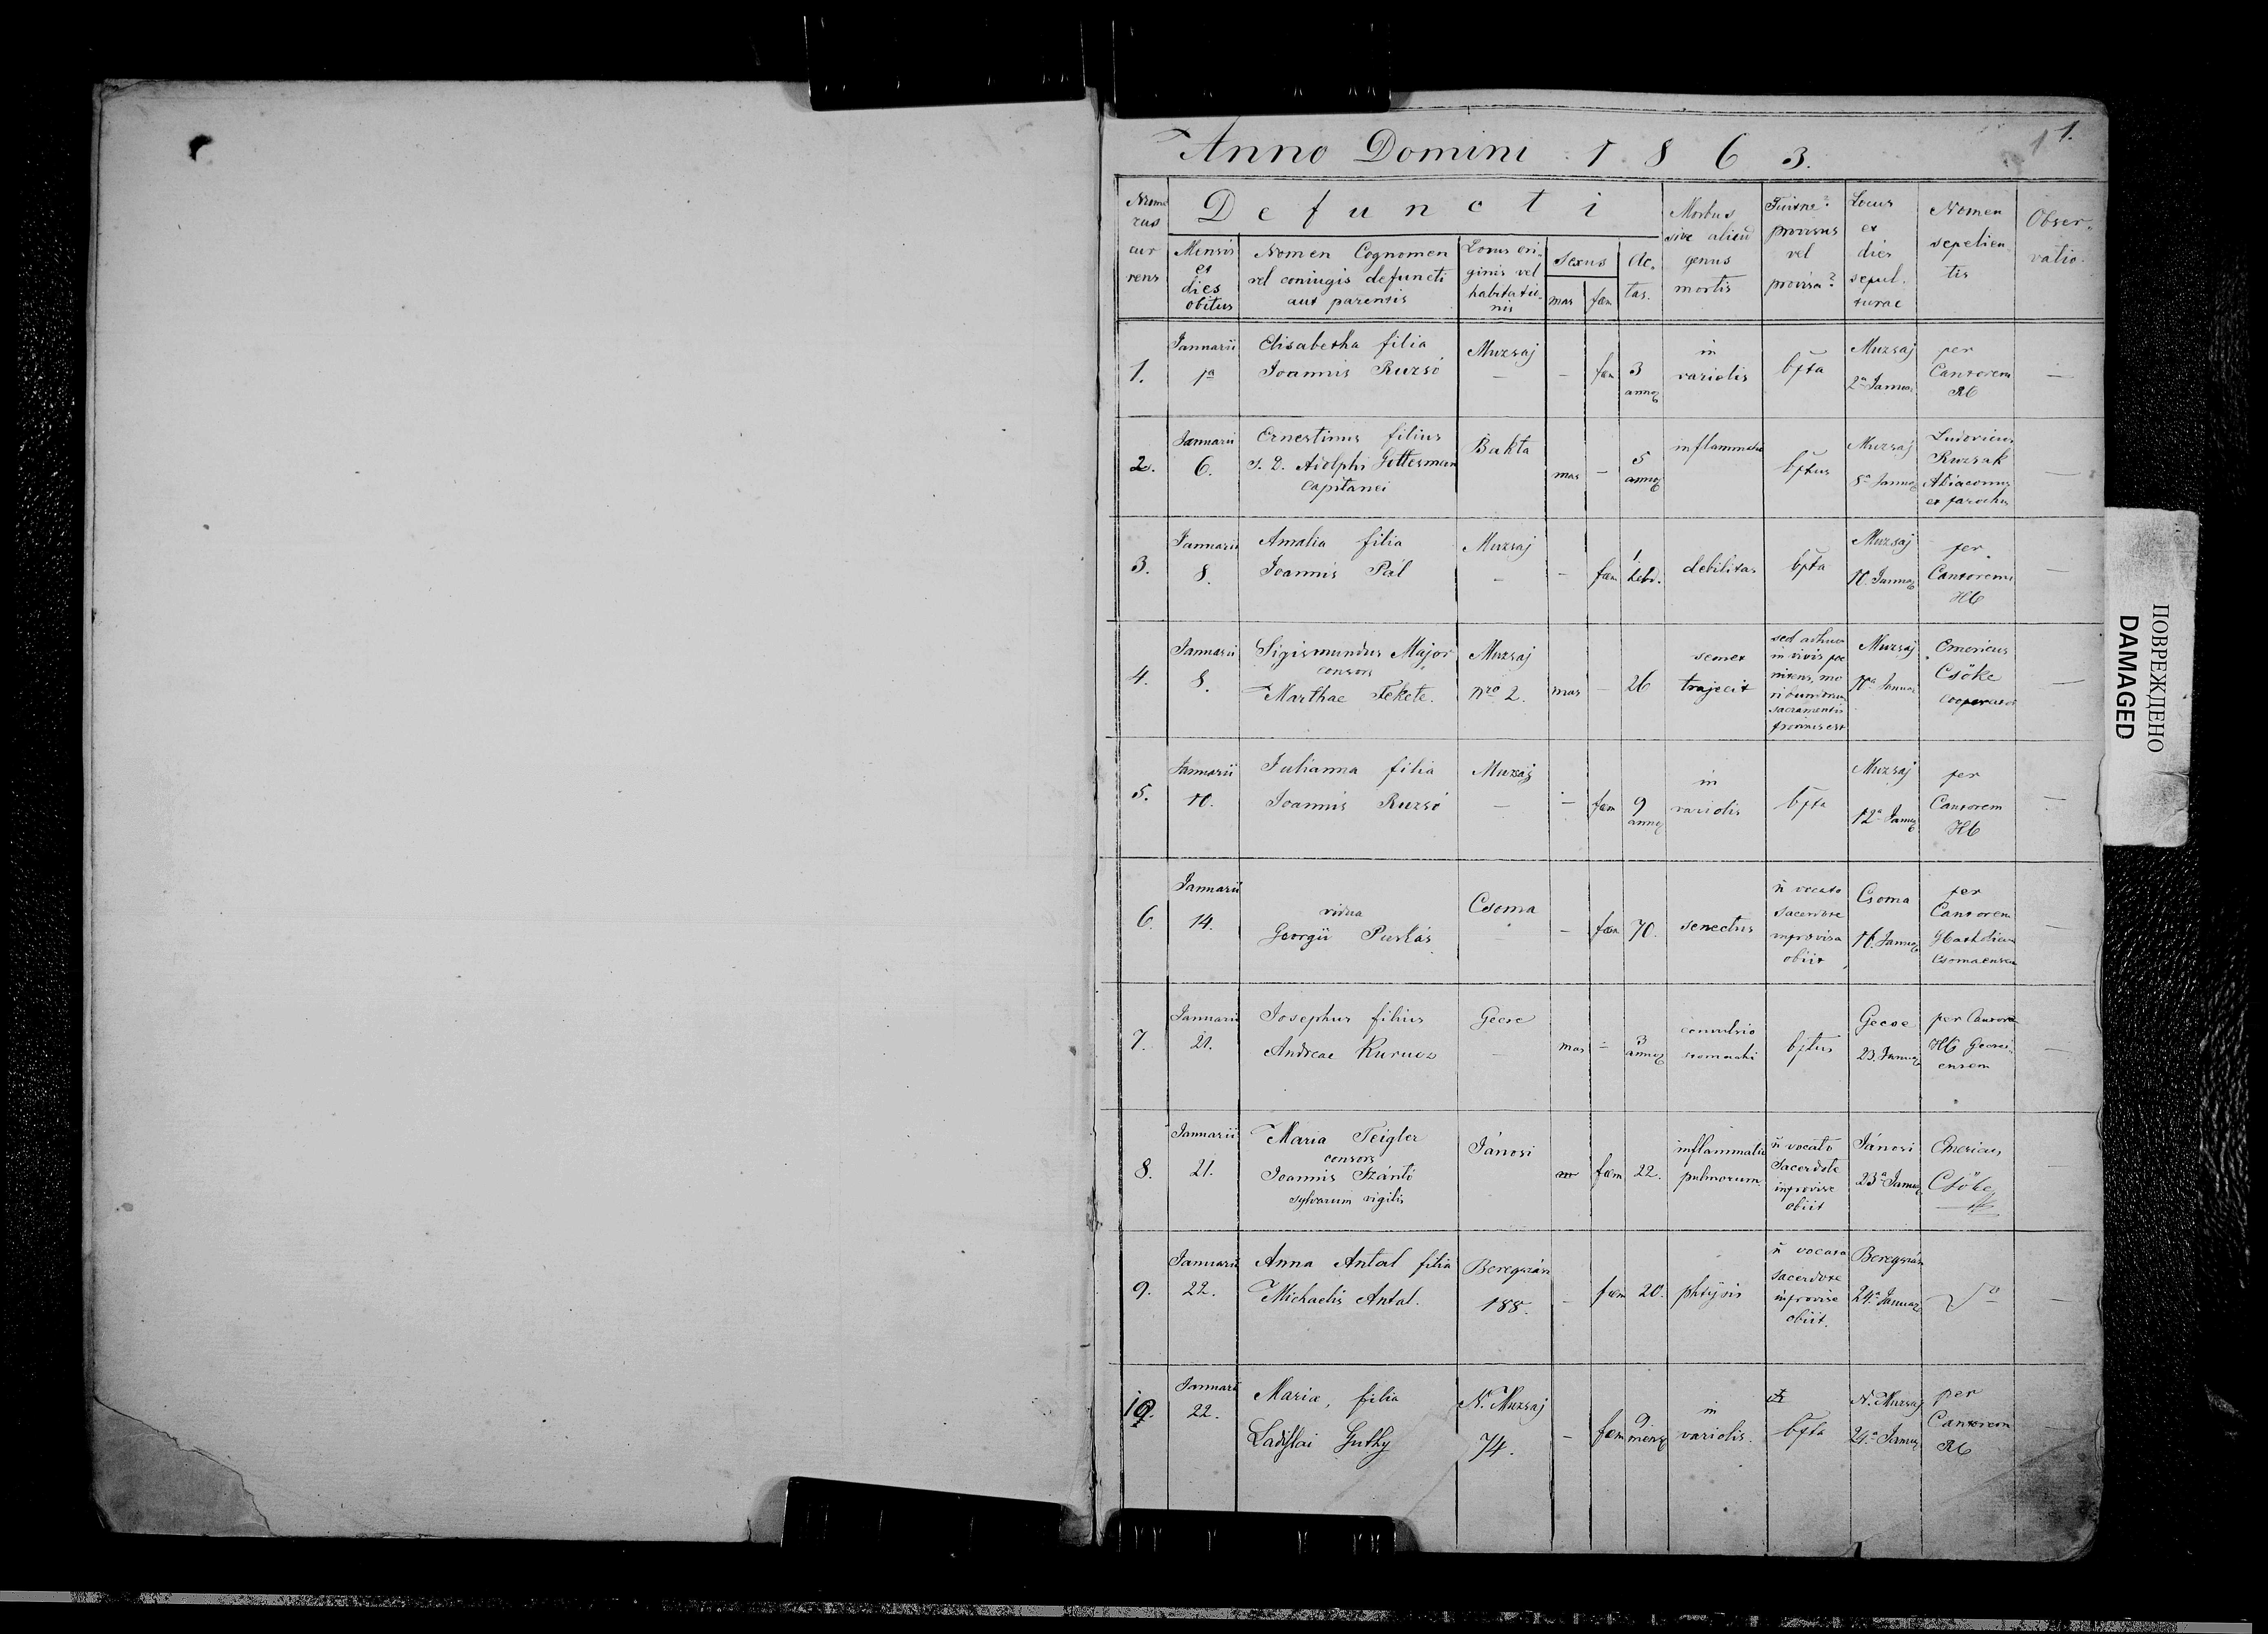 Anno Domini 1863.
1 1.
Defuncti
Nume
rus
cur
rens
Mensis
et
dies
obitus
Nomen Cognomen
vel coniugis defuncti
aut parentis
Locus ori-
ginis vel
habitatio-
nis
Sexus
mas fæm
Ae-
tas.
Morbus
sive aliud
genus
mortis
Fuitne?
provisus
vel
provisa?
Locus
et
dies
sepul-
turae
Nomen
sepelien
tis
Obser-
vatio.
1.
Januarii
1a
Elisabetha filia
Joannis Ruzsó
Muzsaj
—
— fæm 3
anno
in
variolis
bpta
Muzsaj
2a Janua
per
Cantorem
RC
—
2.
Januarii
6.
Ernestinus filius
s. D. Adolphi Gottesman
Capitanei
Bakta
mas — 5
anno
inflammatio
bptus
Muzsaj
8a Janua
Ludovicus
Ruzsak
Adiaconus
et parochus
—
3.
Januarii
8.
Amalia filia
Joannis Pál
Muzsaj
—
— fæm 1
hebd.
debilitas
bpta
Muzsaj
10. Janua
per
Cantorem
HC
—
4.
Januarii
8.
Sigismundus Major
consors
Marthae Fekete.
Muzsaj
nro 2.
mas — 26
semet
trajecit
sed adhuc
in vivis poe
nitens, mo
ribundorum
sacramentis
provisus est
Muzsaj
10a Janua
Emericus
Csőke
cooperator
—
5.
Januarii
10.
Julianna filia
Joannis Ruzsó
Muzsaj
—
— fæm 9
anno
in
variolis
bpta
Muzsaj
12a Janua
per
Cantorem
HC
—
6.
Januarii
14.
vidua
Georgii Puskás
Csoma
—
— fæm 70.
senectus
ñ vocato
sacerdote
improvisa
obiit
Csoma
16. Janua
per
Cantorem
Csomaensem
—
7.
Januarii
21.
Josephus filius
Andreae Kurucz
Gecse
—
mas — 3
anno
convulsio
stomachi
bptus
Gecse
23. Janua
per Cantore
HC Gecsei-
ensem
—
8.
Januarii
21.
Maria Teigler
consors
Joannis Szántó
sylvarum vigilis
Jánosi
fæm 22.
inflammatio
pulmorum.
ñ vocato
Sacerdote
improvise
obiit
Jánosi
23a Janua
Emericus
Csőke
—
9.
Januarii
22.
Anna Antal filia
Michaelis Antal.
Beregszász
188.
— fæm 20.
phtysis
ñ vocato
sacerdote
improvise
obiit.
Beregszász
24a Januar
—
10.
Januarii
22.
Maria, filia
Ladislai Guthy
N. Muzsaj
74.
— fæm 9
mens
in
variolis.
bpta
N. Muzsaj
24a Janua
per
Cantorem
RC
—
ПОВРЕЖДЕНО
DAMAGED